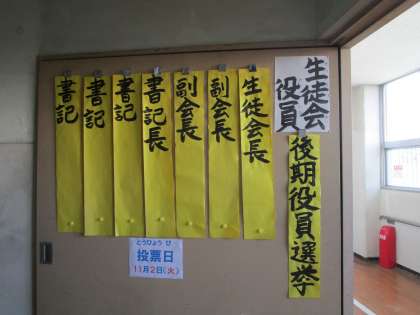 生徒会
役員
後期役員選挙
生徒会長
副会長
副会長
書記長
書記
書記
書記
とうひょう び
投票日
11月2日(火)